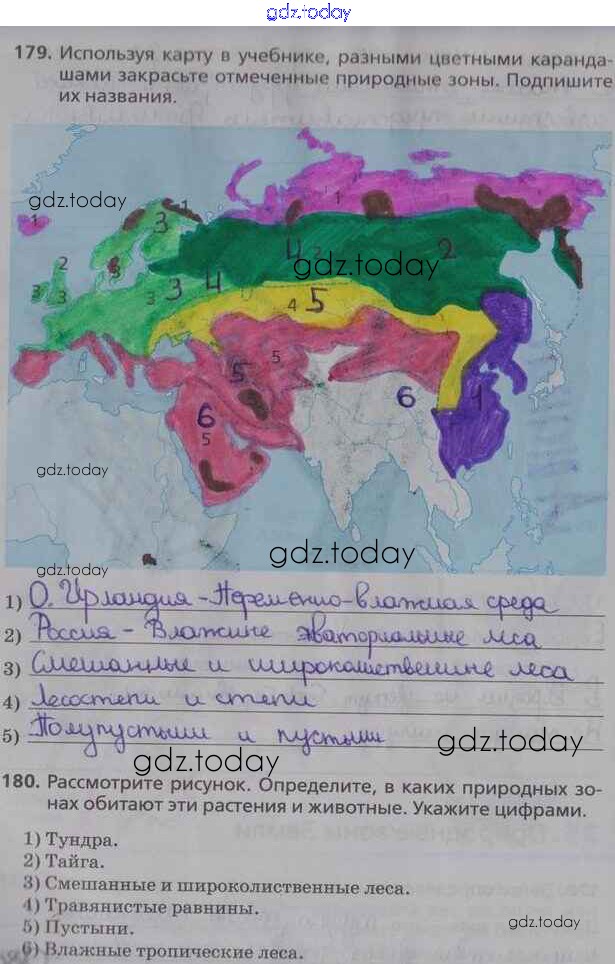 gdz.today
179. Используя карту в учебнике, разными цветными каранда-
шами закрасьте отмеченные природные зоны. Подпишите
их названия.
gdz.today
gdz.today
gdz.today
gdz.today
1) О. Ирландия - Переменно-влажная среда
2) Россия - Влажные экваториальные леса
3) Смешанные и широколиственные леса
4) Лесостепи и степи
5) Полупустыни и пустыни
gdz.today
gdz.today
180. Рассмотрите рисунок. Определите, в каких природных зо-
нах обитают эти растения и животные. Укажите цифрами.
1) Тундра.
2) Тайга.
3) Смешанные и широколиственные леса.
4) Травянистые равнины.
5) Пустыни.
6) Влажные тропические леса.
gdz.today